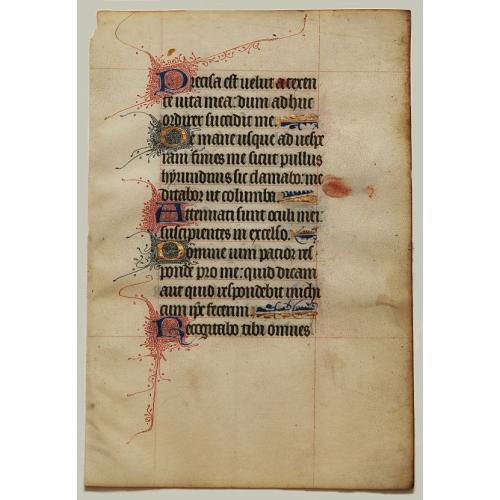 Precisa est velut a texen
te vita mea: dum adhuc
ordirer succidit me.
De mane usque ad vespe
ram finies me sicut pullus
hyrundinis sic clamabo: me
ditabor ut columba.
Attenuati sunt oculi mei:
suscipientes in excelso.
Domine vim pacior res
ponde pro me: quid dicam
aut quid respondebit michi
cum ipse fecerim.
Recogitabo tibi omnes